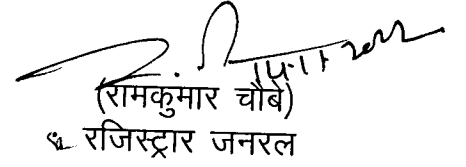 14.11.2022
(रामकुमार चौबे)
रजिस्ट्रार जनरल